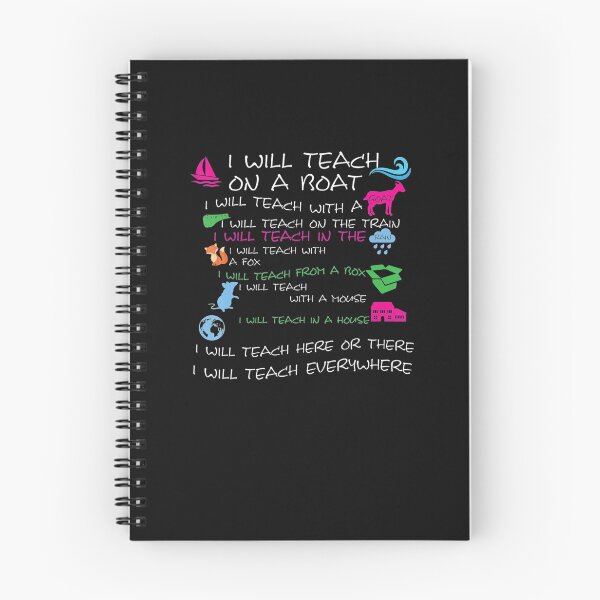 I WILL TEACH
ON A BOAT
I WILL TEACH WITH A GOAT
I WILL TEACH ON THE TRAIN
I WILL TEACH IN THE RAIN
I WILL TEACH WITH
A FOX
I WILL TEACH FROM A BOX
I WILL TEACH
WITH A MOUSE
I WILL TEACH IN A HOUSE
I WILL TEACH HERE OR THERE
I WILL TEACH EVERYWHERE